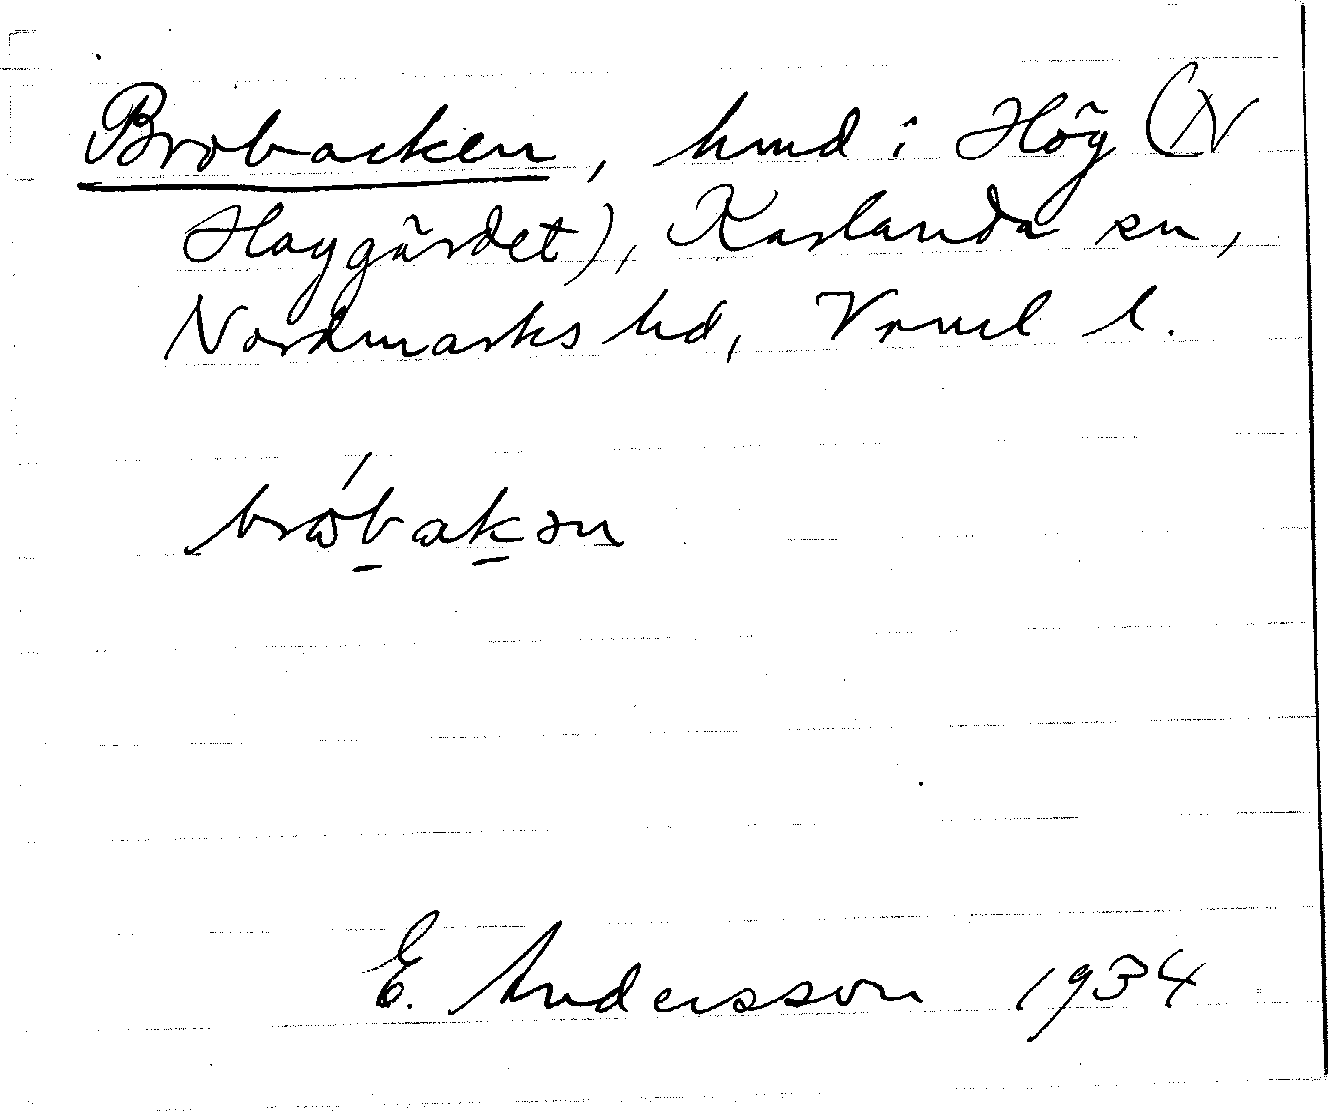 Brobacken, hmd i Hög (N
Haygärdet), Karlanda sn,
Nordmarks hd, Vrml l.
bróbakən
E. Andersson 1934